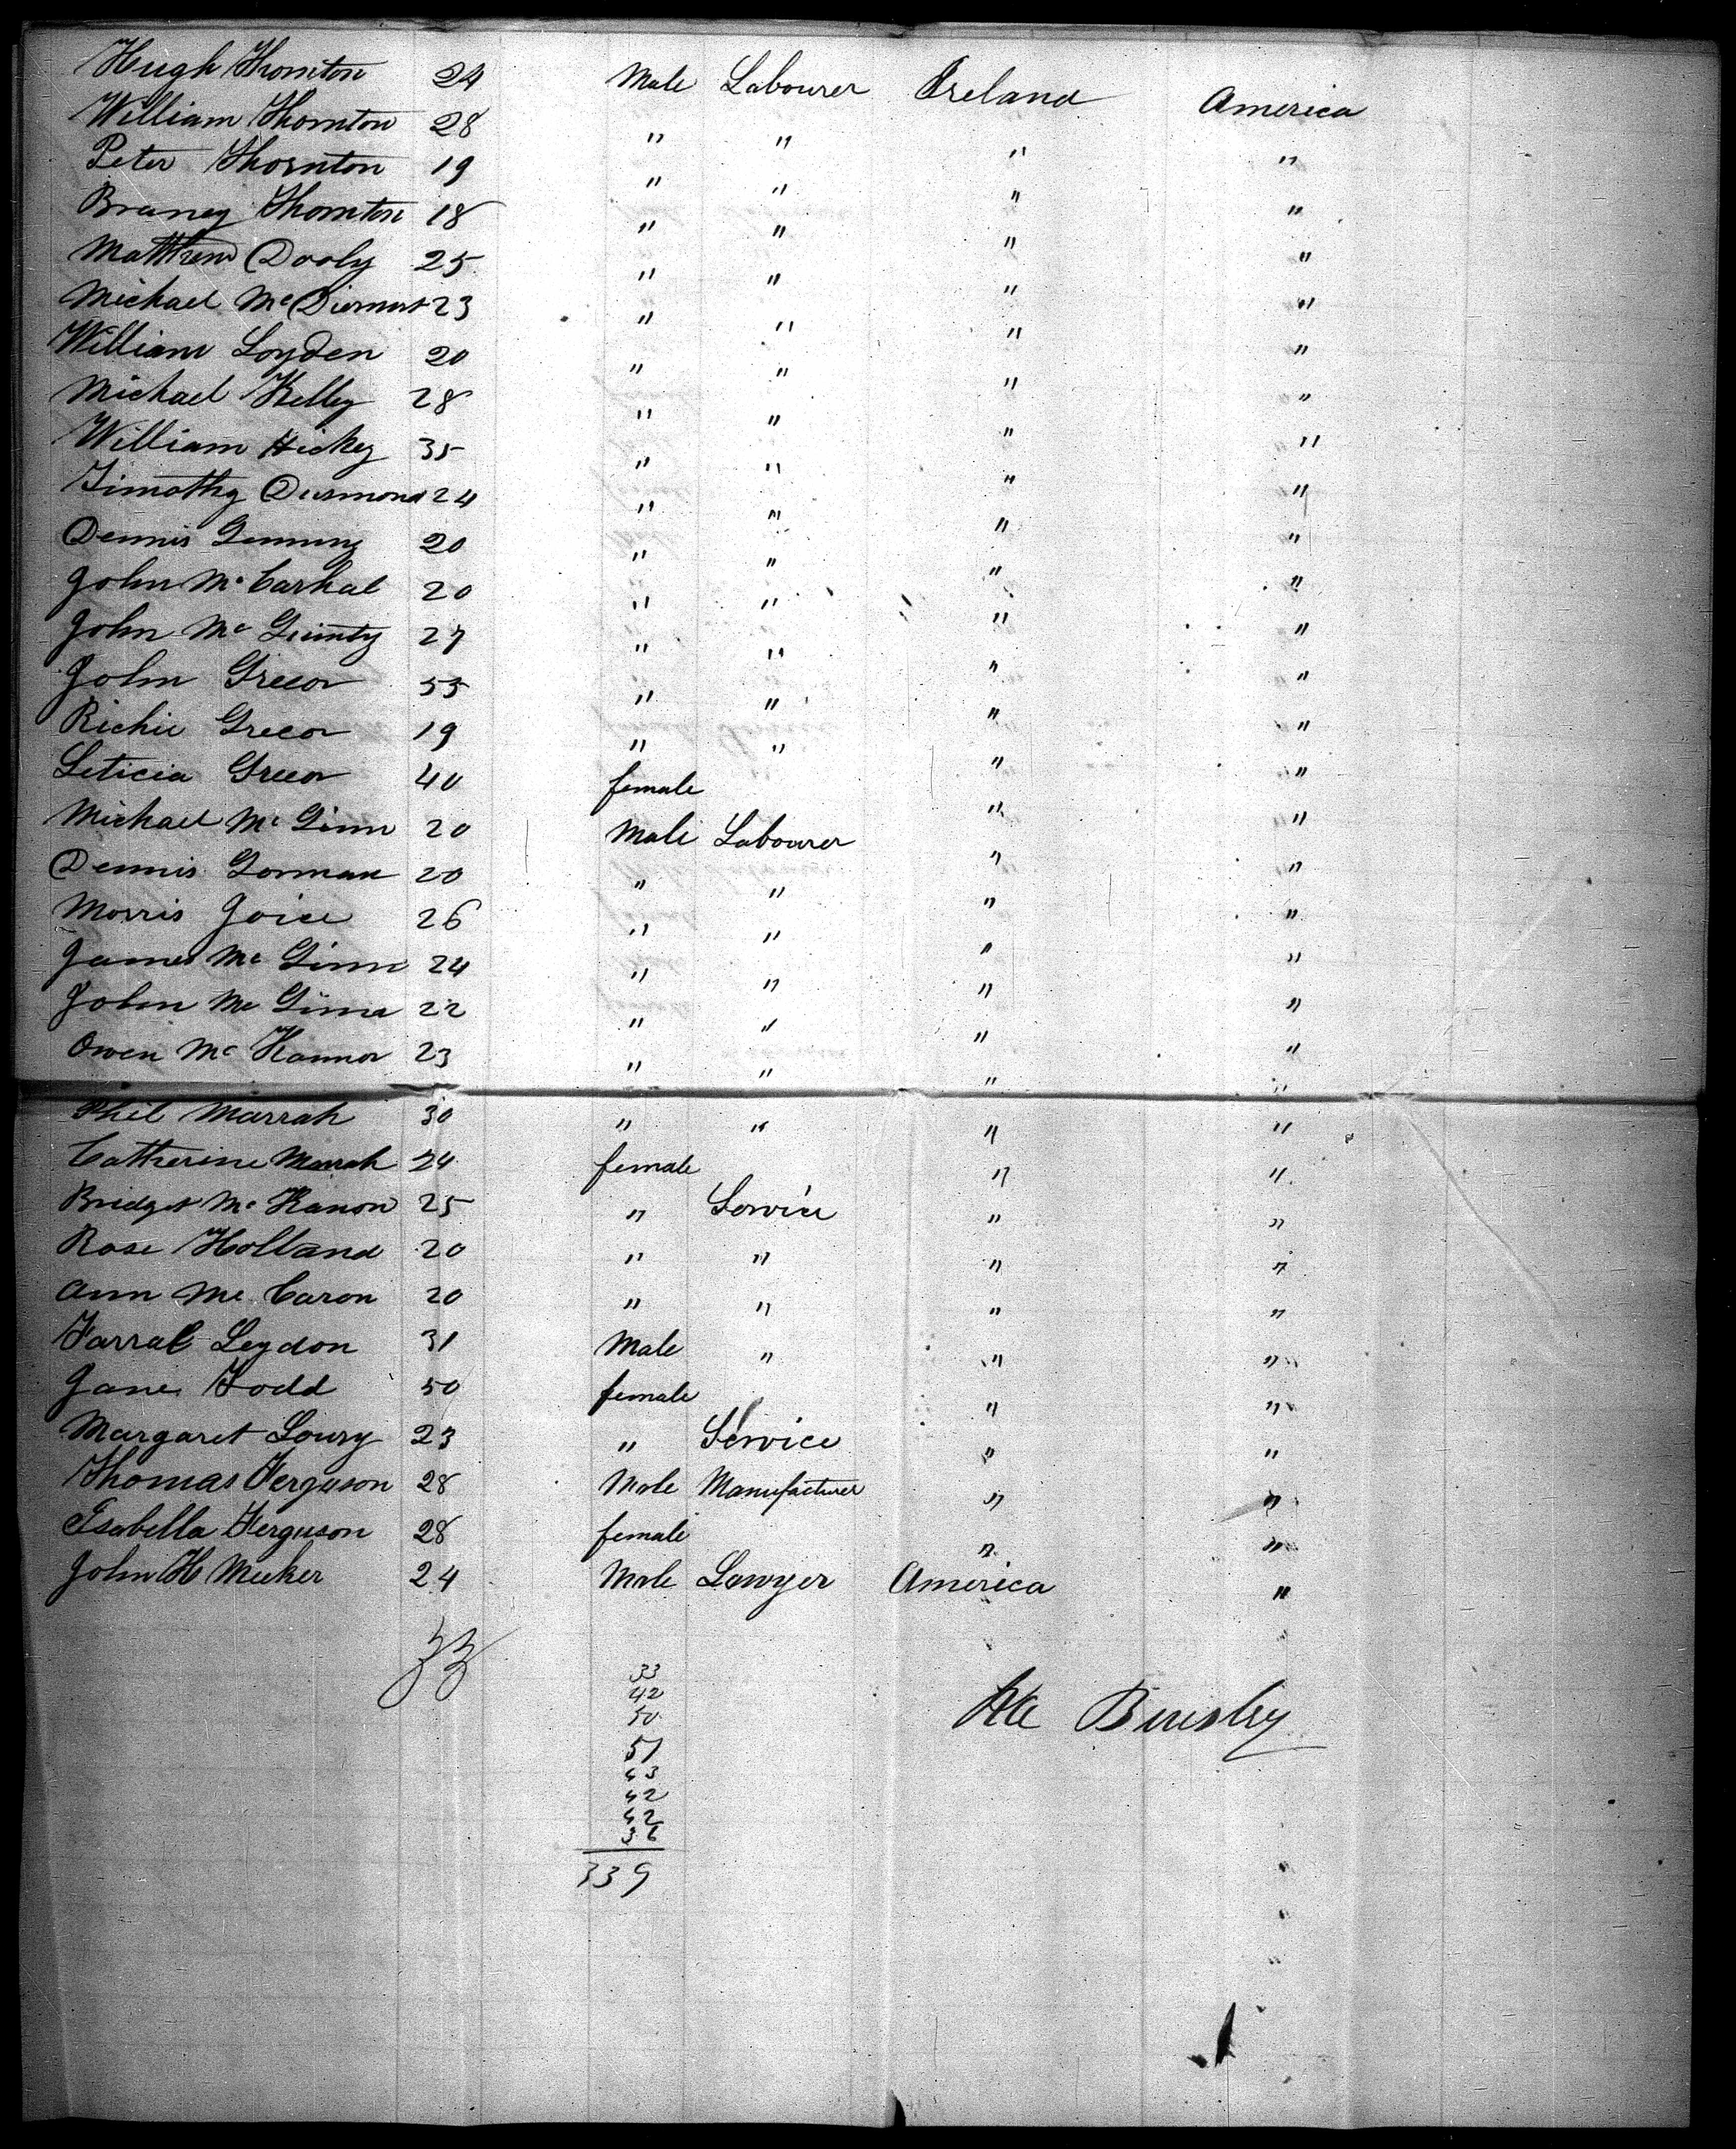 Hugh Thornton 24 Male Labourer Ireland America
William Thornton 28 " " " "
Peter Thornton 19 " " " "
Braney Thornton 18 " " " "
Matthew Dooly 25 " " " "
Michael Mc Diermot 23 " " " "
William Loyden 20 " " " "
Michael Kelley 28 " " " "
William Hickey 35 " " " "
Timothy Desmond 24 " " " "
Dennis 20 " " " "
John Mc Carhal 20 " " " "
John Mc Guinty 27 " " " "
John Greeor 55 " " " "
Richie Greeor 19 " " " "
Leticia Greeor 40 female " "
Michael Mc Ginn 20 Male Labourer " "
Dennis Gorman 20 " " " "
Morris Joice 26 " " " "
James Mc Ginn 24 " " " "
John Mc Ginn 22 " " " "
Owen Mc Kannor 23 " " " "
Phil Marrah 30 " " " "
Catherine Marrah 24 female " "
Bridget Mc Kanon 25 " Service " "
Rose Holland 20 " " " "
Ann Mc Caron 20 " " " "
Farral Leydon 31 Male " " "
Jane Todd 50 female " "
Margaret Loury 23 " Service " "
Thomas Ferguson 28 Male Manufacturer " "
Isabella Ferguson 28 female " "
John H Meeker 24 Male Lawyer America "
33
33
42
50
51
43
42
42
36
339